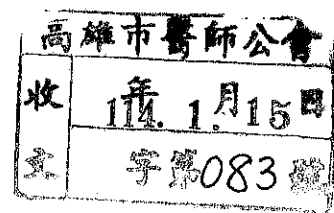 高雄市醫師公會
收 年 月 日
114. 1. 15
文 字第083號